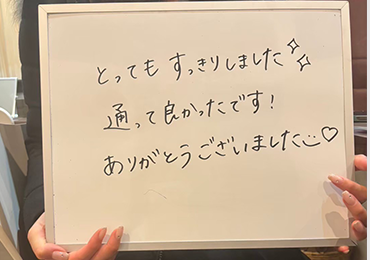 とってもすっきりしました✧✧
通って良かったです!
ありがとうございました☺♡